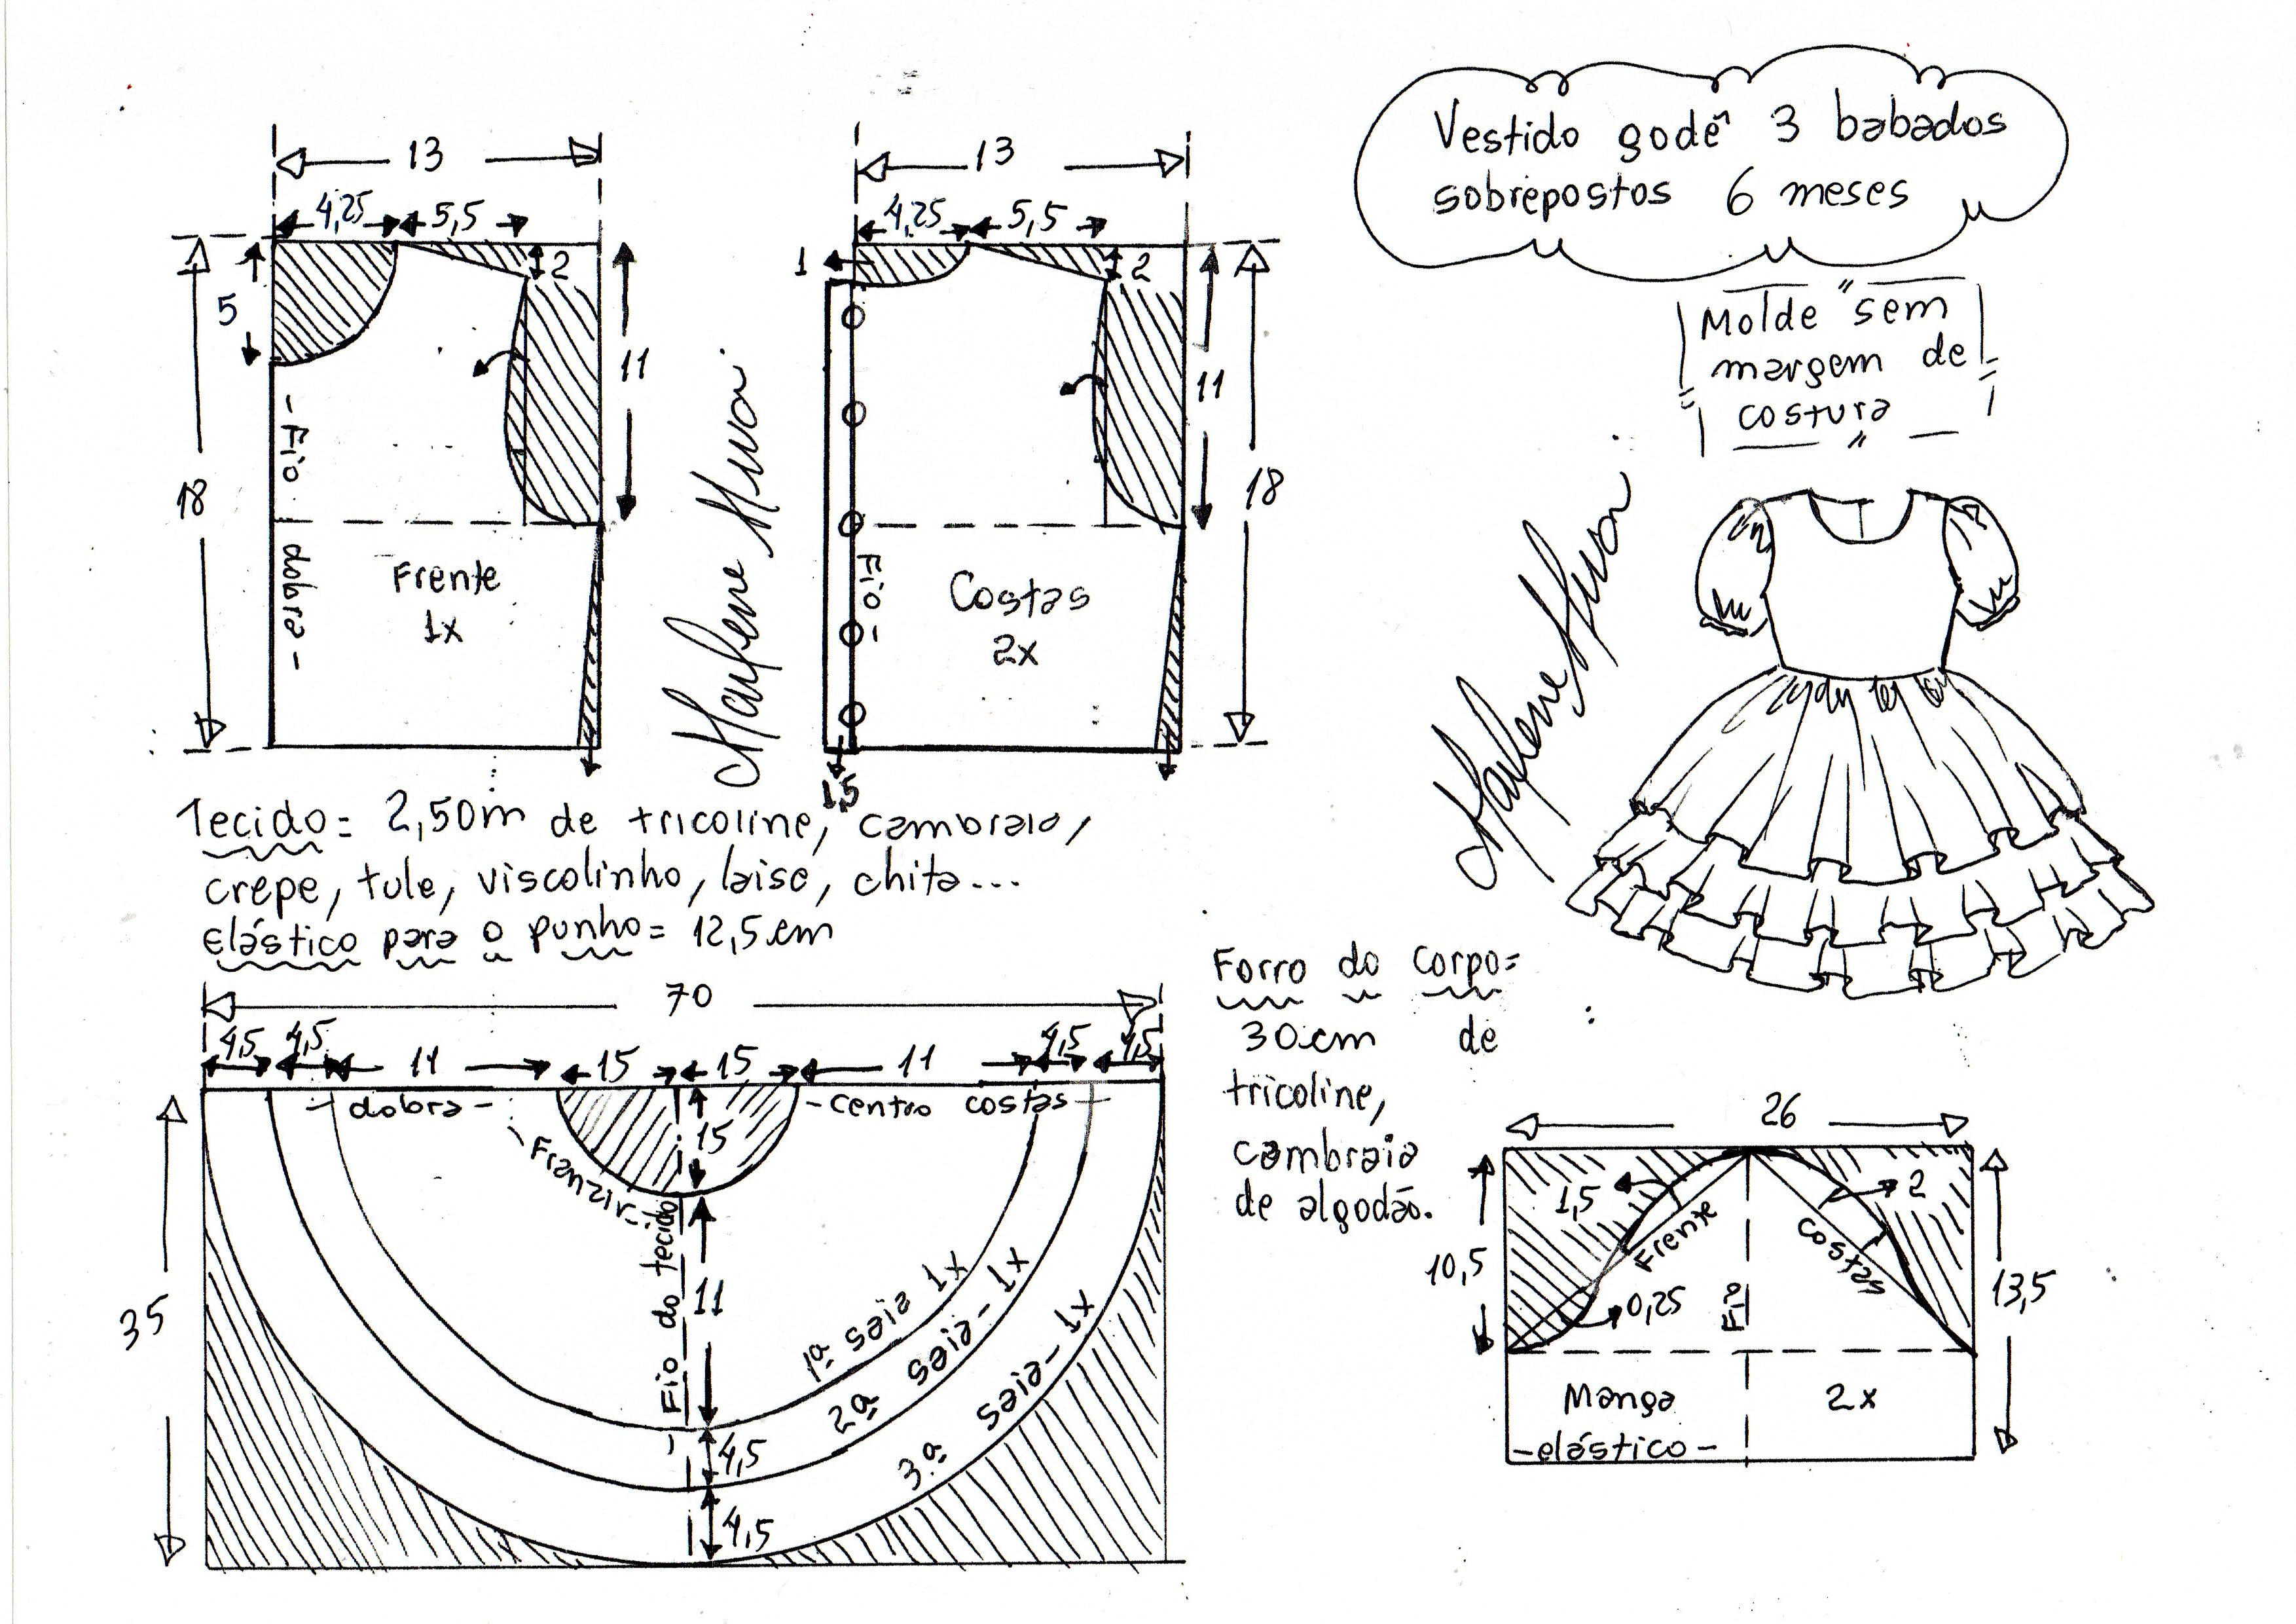 Vestido godê 3 babados
sobrepostos 6 meses
Molde "sem
margem de
costura
"
13
4,25
5,5
2
5
11
18
- Fio dobra -
Frente
1x
Marlene Mukai
13
4,25
5,5
1
2
11
18
Fio -
Costas
2x
1,5
Marlene Mukai
Tecido= 2,50m de tricoline, cambraia,
crepe, tule, viscolinho, laise, chita...
elástico para o punho= 12,5cm
Forro do corpo=
30cm de
tricoline,
cambraia
de algodão.
70
4,5
4,5
11
15
15
11
4,5
4,5
- dobra -
- centro costas -
15
Franzir -
35
- Fio do tecido
11
1ª saia 1x
4,5
2ª saia - 1x
4,5
3ª saia - 1x
26
1,5
2
Frente
Costas
10,5
0,25
Fio
13,5
Manga
2x
- elástico -